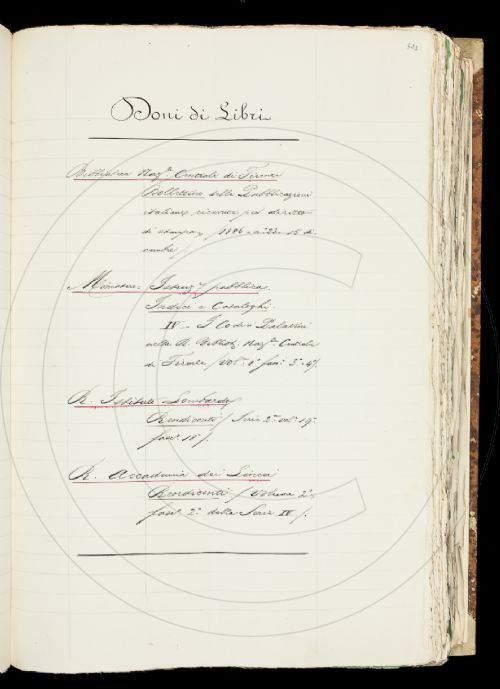 Doni di Libri
Biblioteca Naz.le Centrale di Firenze
Bollettino delle Pubblicazioni
italiane ricevute per diritto
di stampa / 1886 15 di
cembre /
Ministero Istruz. pubblica
Indici e Cataloghi
IV - I Codici Palatini
nella R. Bibliot. Naz.le Centrale
di Firenze / Vol. 1° fasc. 3°
R. Istituto Lombardo
Rendiconti / Serie 2ª vol. 19°
fasc. 18 /.
R. Accademia dei Lincei
Rendiconti / Volume 2°
fasc. 2° della Serie IV /.